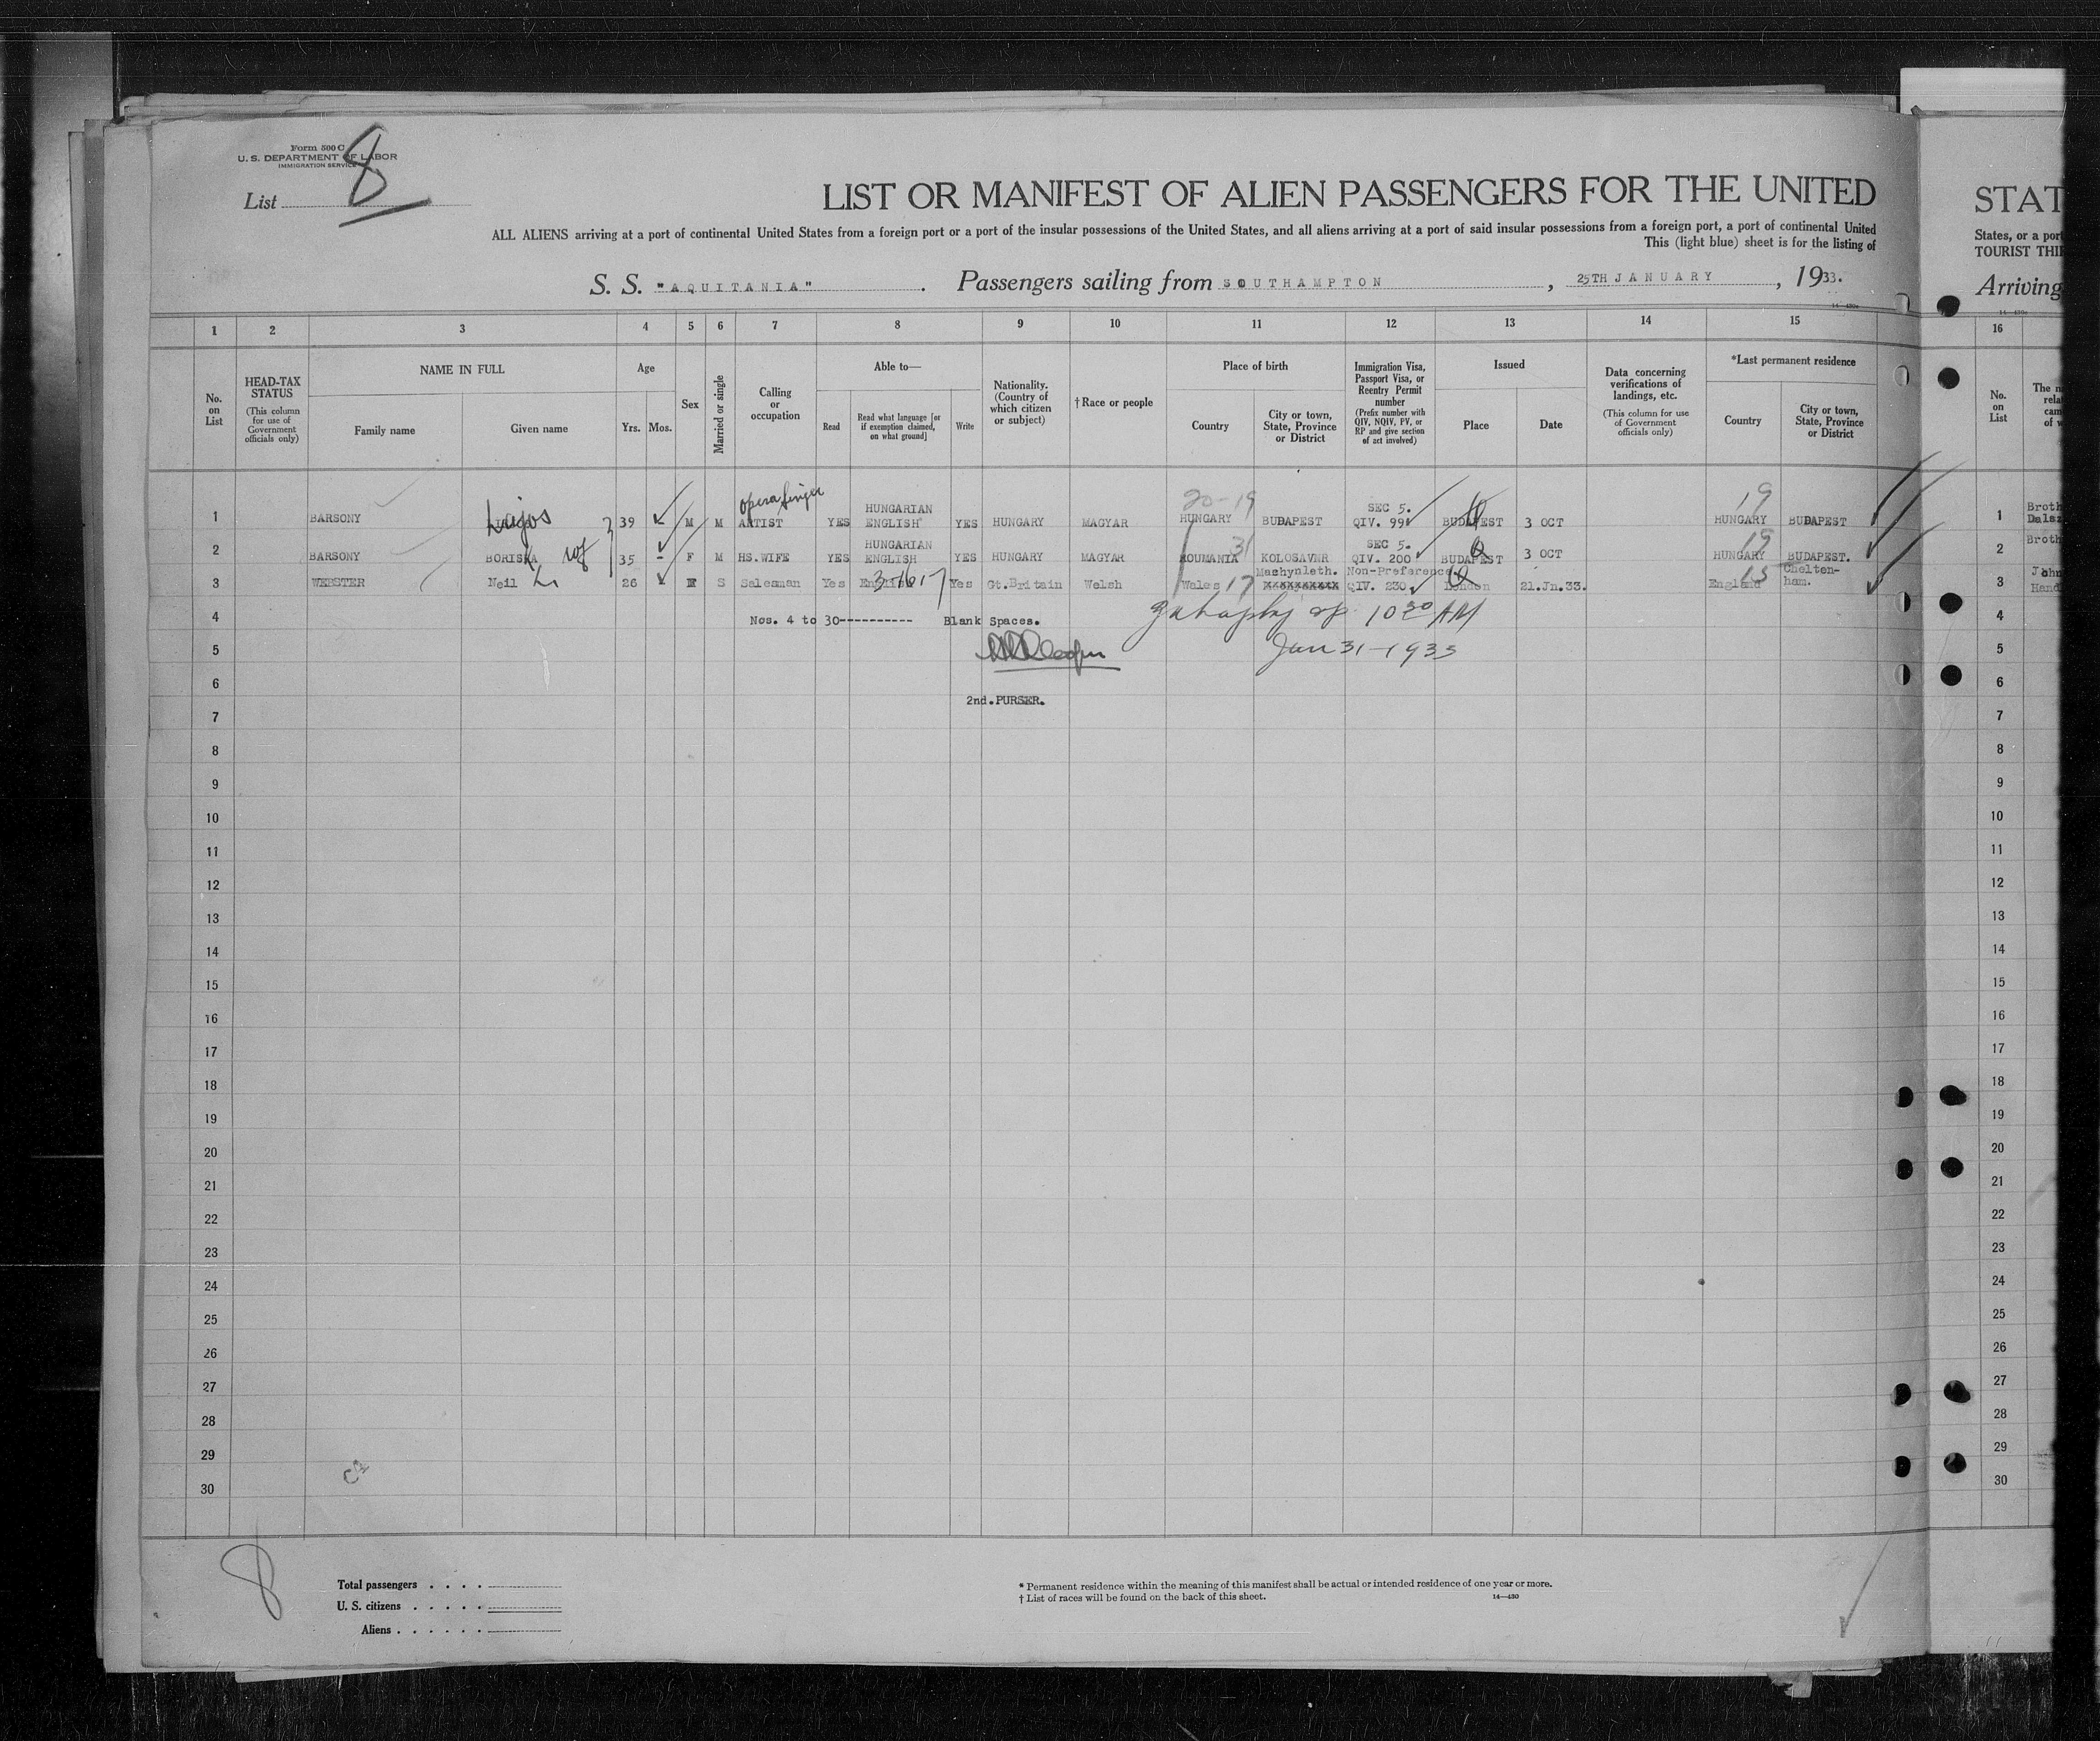 Form 500 C
U. S. DEPARTMENT OF LABOR
IMMIGRATION SERVICE
List 8
LIST OR MANIFEST OF ALIEN PASSENGERS FOR THE UNITED
ALL ALIENS arriving at a port of continental United States from a foreign port or a port of the insular possessions of the United States, and all aliens arriving at a port of said insular possessions from a foreign port, a port of continental United
This (light blue) sheet is for the listing of
S. S. "AQUITANIA". Passengers sailing from SOUTHAMPTON, 25TH JANUARY, 1933.
14—430
1 2 3 4 5 6 7 8 9 10 11 12 13 14 15
No. on List
HEAD-TAX STATUS
(This column for use of Government officials only)
NAME IN FULL
Family name
Given name
Age
Yrs. Mos.
Sex
Married or single
Calling or occupation
Able to—
Read
Read what language [or if exemption claimed, on what ground]
Write
Nationality. (Country of which citizen or subject)
†Race or people
Place of birth
Country
City or town, State, Province or District
Immigration Visa, Passport Visa, or Reentry Permit number
(Prefix number with QIV, NQIV, PV, or RP and give section of act involved)
Issued
Place
Date
Data concerning verifications of landings, etc.
(This column for use of Government officials only)
*Last permanent residence
Country
City or town, State, Province or District
opera singer
20-19
19
HUNGARIAN SEC 5.
1 BARSONY Lajos 39 M M ARTIST YES ENGLISH YES HUNGARY MAGYAR HUNGARY BUDAPEST QIV. 99 BUDAPEST 3 OCT HUNGARY BUDAPEST
HUNGARIAN 31 SEC 5. 19
2 BARSONY BORISKA wf 35 - F M HS.WIFE YES ENGLISH YES HUNGARY MAGYAR ROUMANIA KOLOSAVNR QIV. 200 BUDAPEST 3 OCT HUNGARY BUDAPEST.
Mashynleth. Non-Preference 15 Chelten-
3 WEBSTER Neil 26 M S Salesman Yes English Yes Gt.Britain Welsh Wales 17 xxxxxxxxxx QIV. 230. London 21.Jn.33. England ham.
4 Nos. 4 to 30---------- Blank Spaces. 10 30 AM
5 Jan 31-1933
6
2nd.PURSER.
7
8
9
10
11
12
13
14
15
16
17
18
19
20
21
22
23
24
25
26
27
28
29
30
8
Total passengers
U. S. citizens
Aliens
* Permanent residence within the meaning of this manifest shall be actual or intended residence of one year or more.
† List of races will be found on the back of this sheet.
14—430
STAT
States, or a port
TOURIST THI
Arriving
14—430
16
No. on List
The n
rela
cam
of w
1 Broth
Dalsz
2 Broth
3 John
Hand
4
5
6
7
8
9
10
11
12
13
14
15
16
17
18
19
20
21
22
23
24
25
26
27
28
29
30